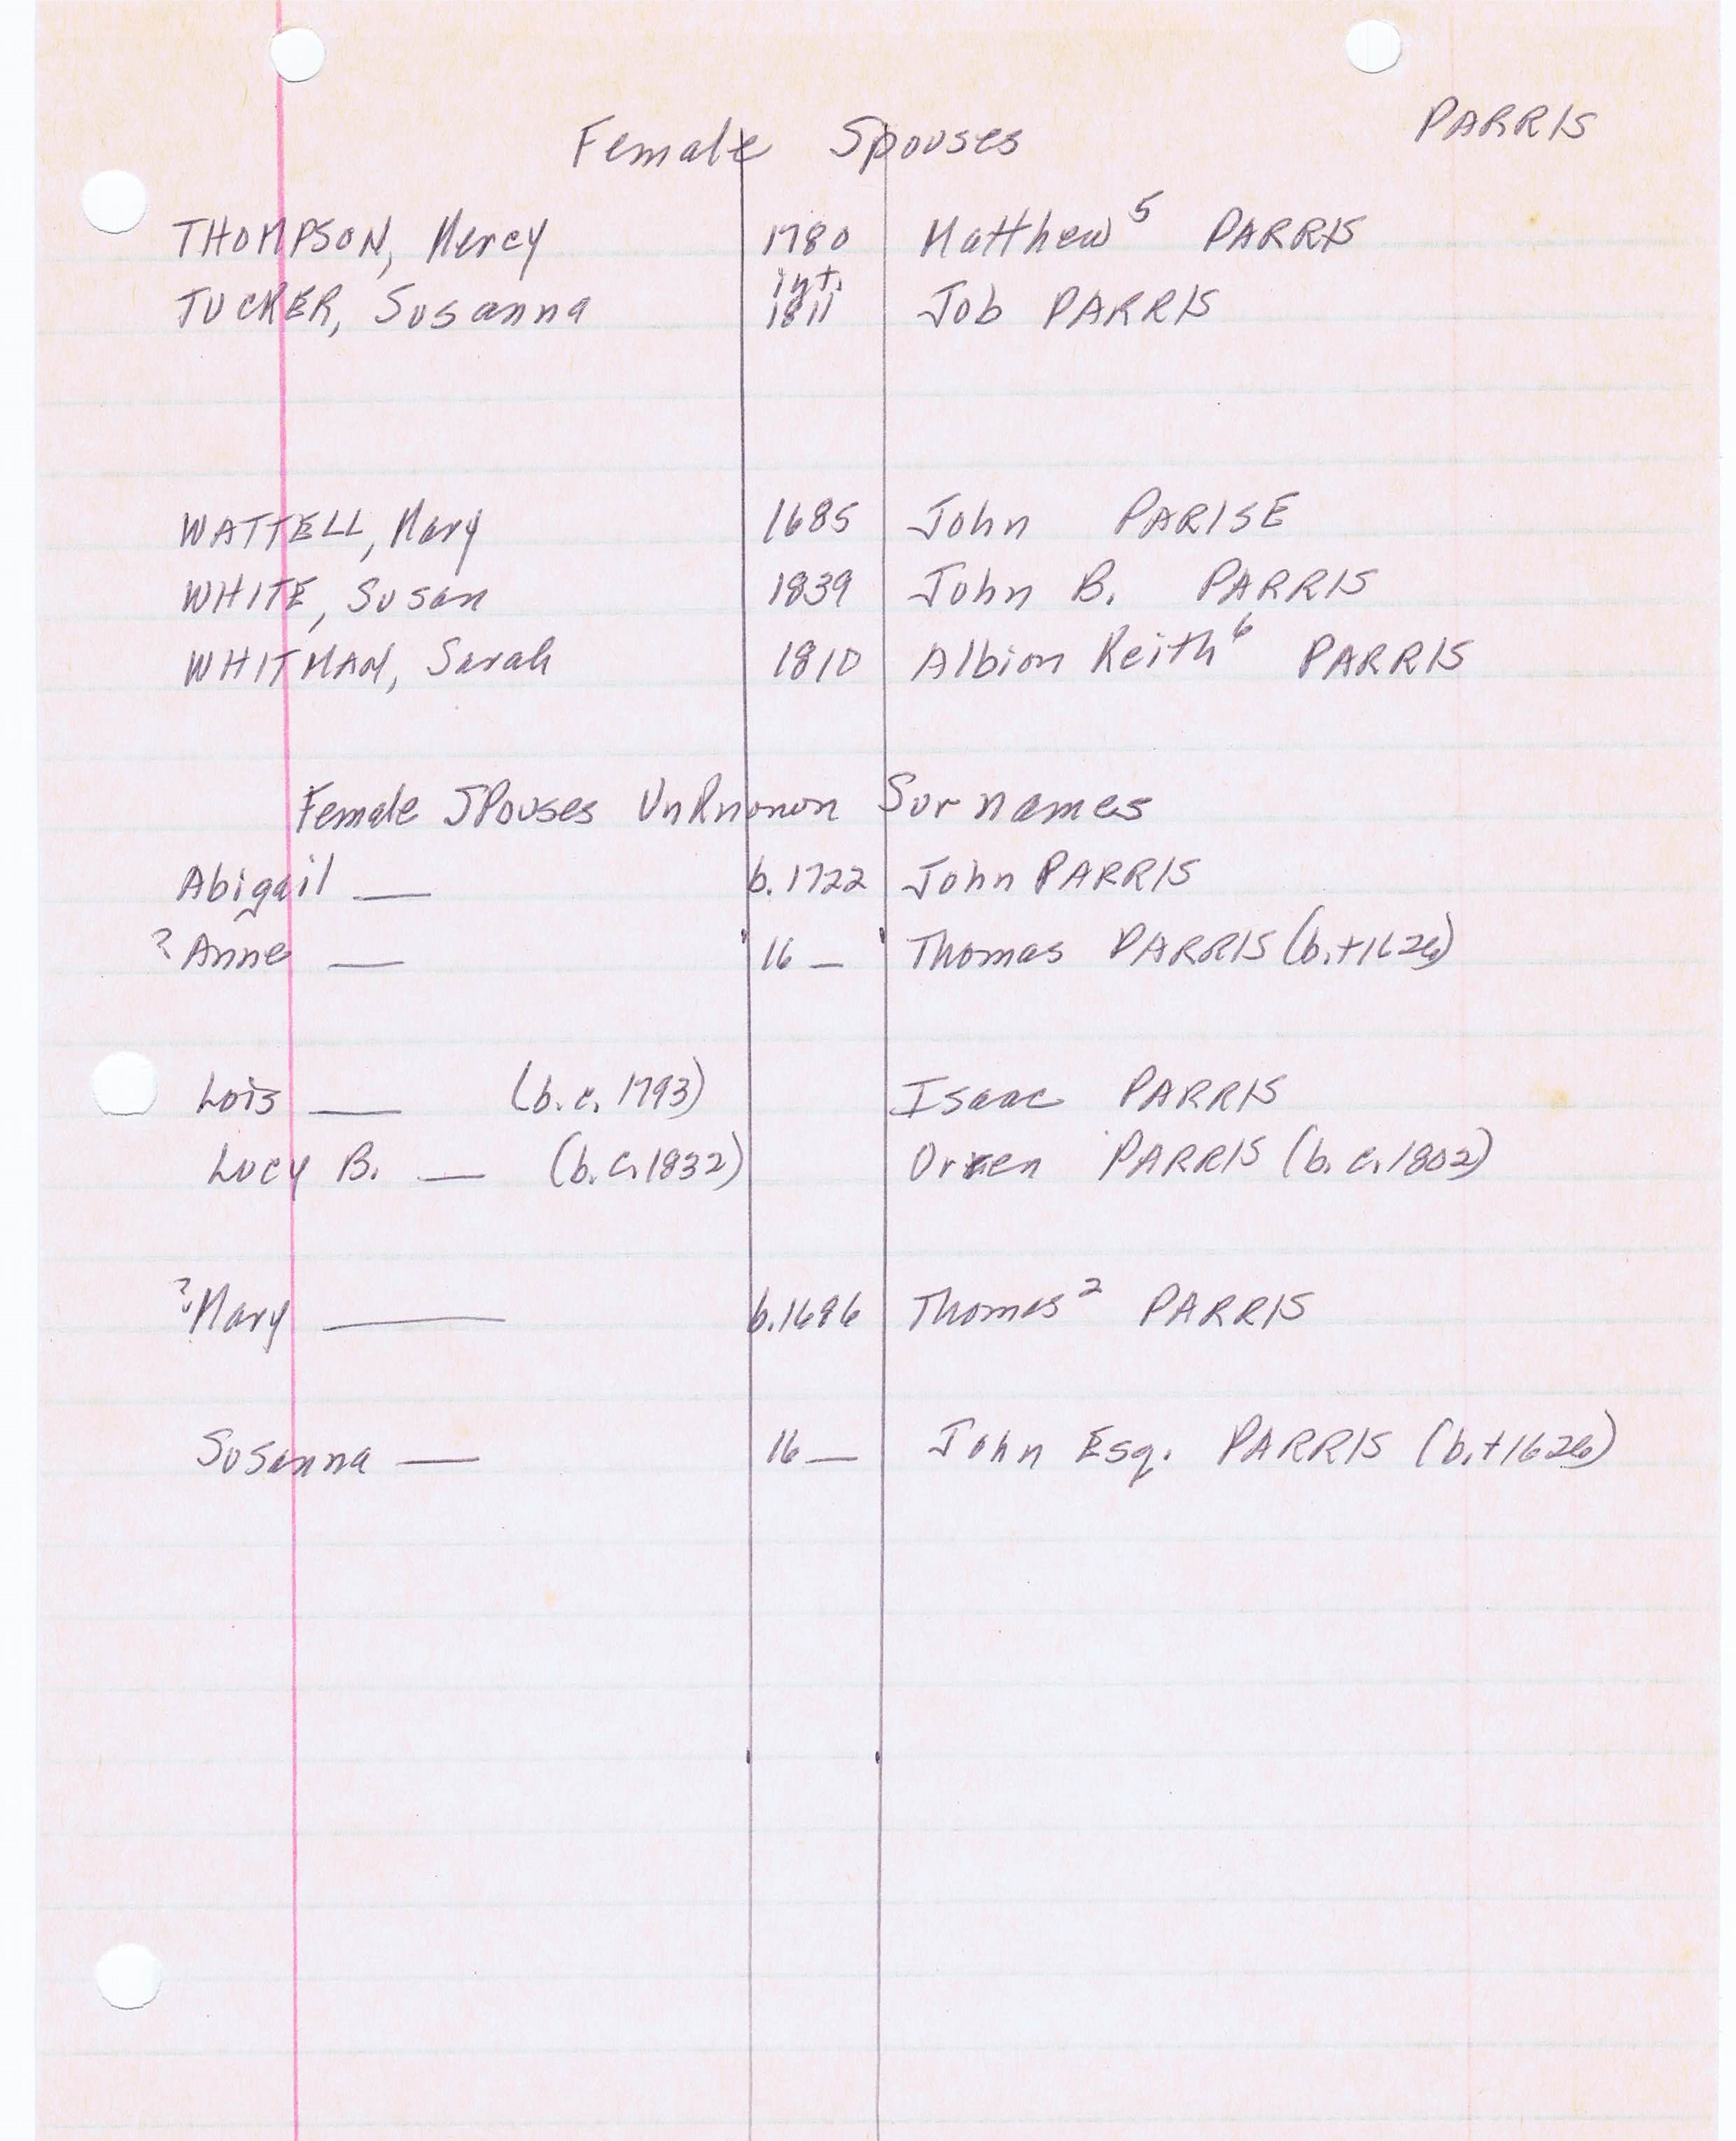 PARRIS
Female Spouses
THOMPSON, Mercy 1780 Matthew⁵ PARRIS
TUCKER, Susanna int. 1811 Job PARRIS
WATTELL, Mary 1685 John PARISE
WHITE, Susan 1839 John B. PARRIS
WHITMAN, Sarah 1810 Albion Keith⁶ PARRIS
Female Spouses Unknown Surnames
Abigail — b.1722 John PARRIS
? Anne — 16 — Thomas PARRIS (b.+1626)
Lois — (b.c. 1793) Isaac PARRIS
Lucy B. — (b.c. 1832) Orren PARRIS (b.c. 1802)
? Mary — b.1686 Thomas² PARRIS
Susanna — 16 — John Esq. PARRIS (b.+1626)